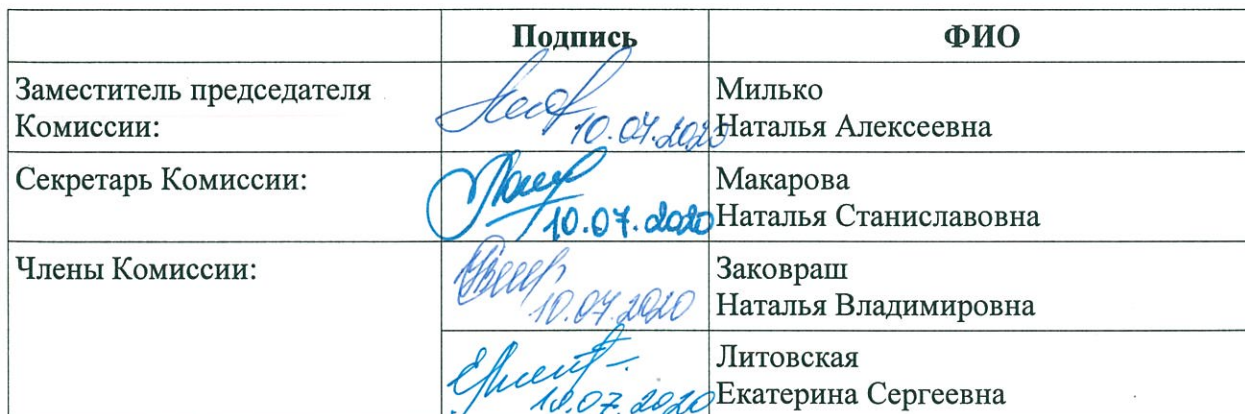 Подпись ФИО
Заместитель председателя
Комиссии:
10.07.2020
Милько
Наталья Алексеевна
Секретарь Комиссии:
10.07.2020
Макарова
Наталья Станиславовна
Члены Комиссии:
10.07.2020
Заковраш
Наталья Владимировна
10.07.2020
Литовская
Екатерина Сергеевна